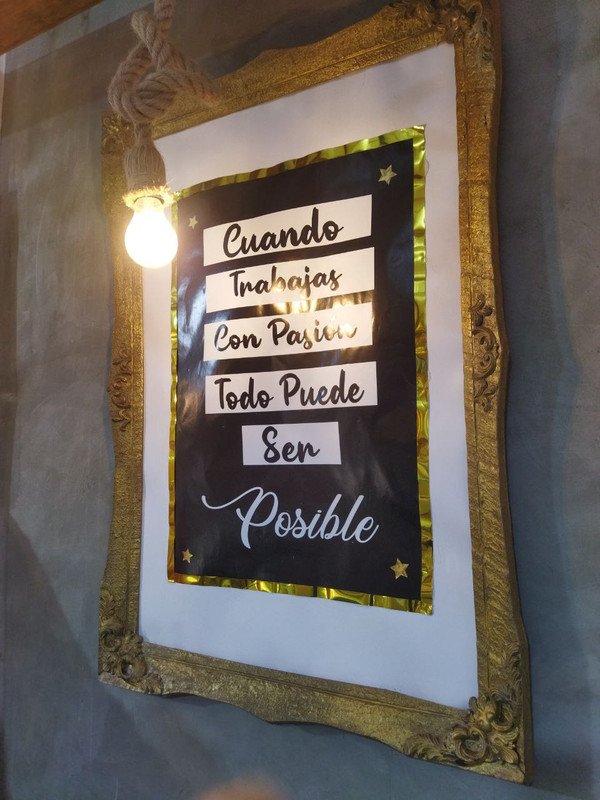 Cuando
Trabajas
Con Pasión
Todo Puede
Ser
Posible